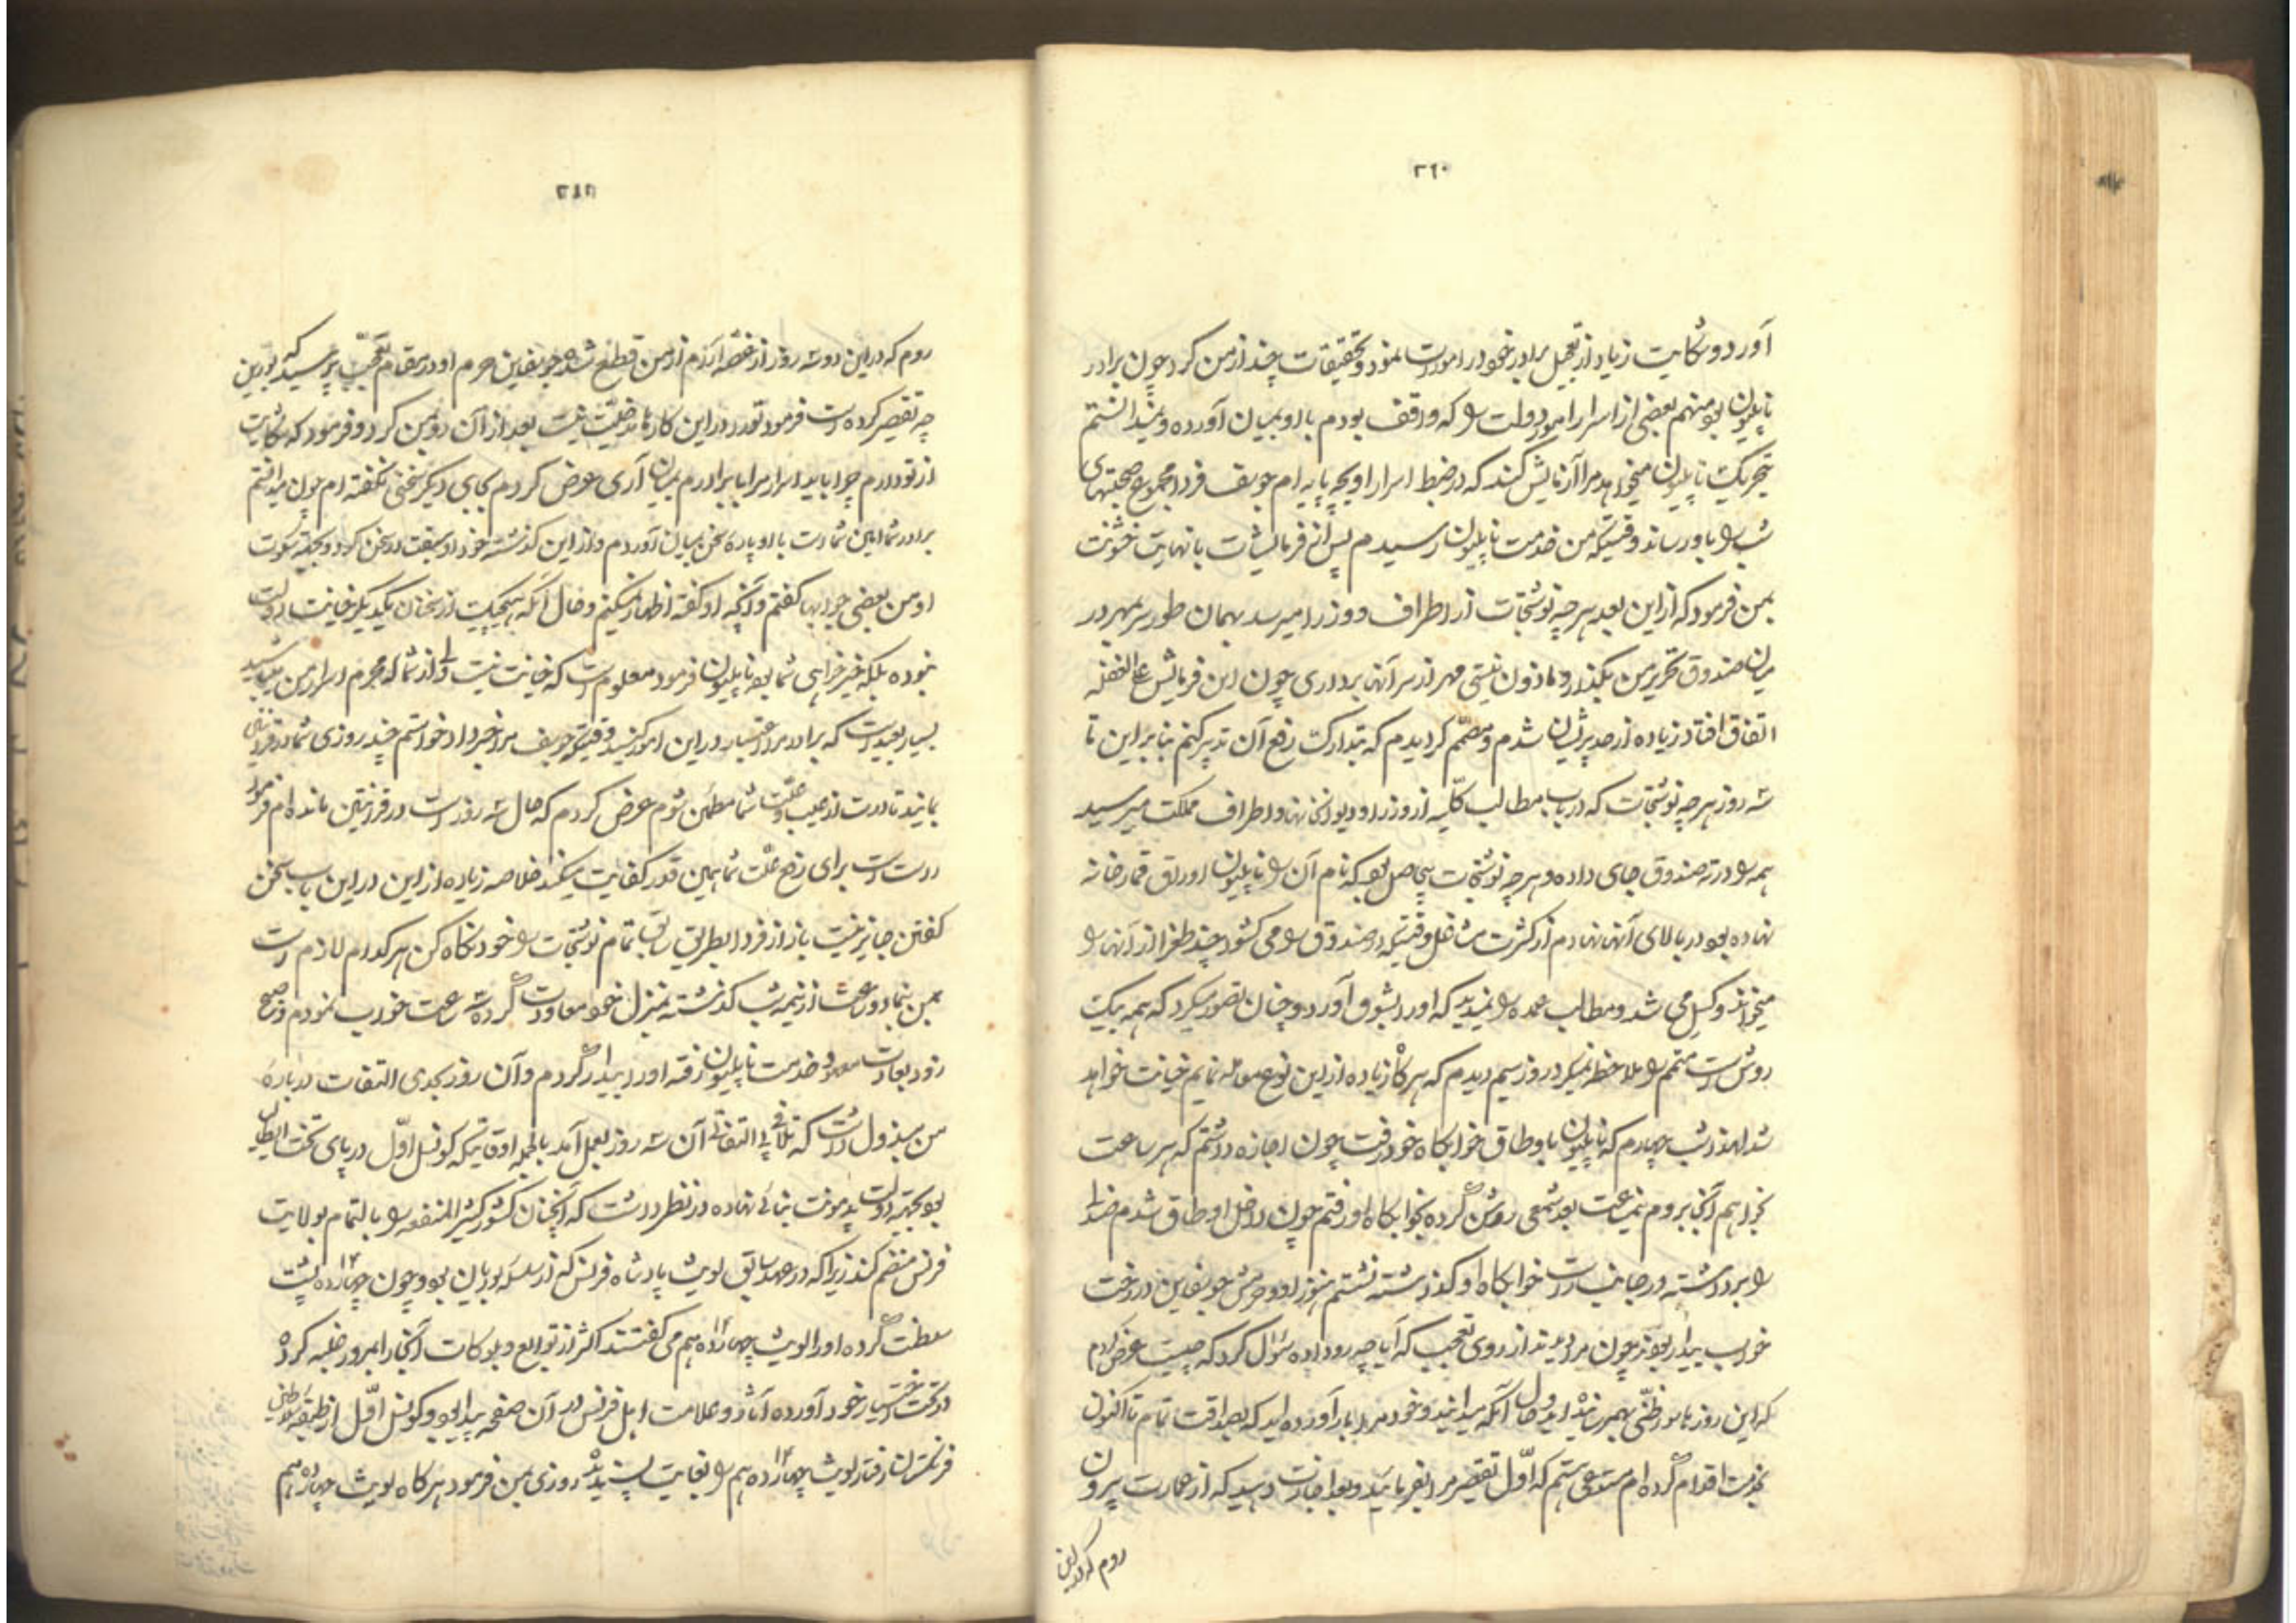 ۲۶۰
آورد و شکایت زیاد از تعجیل برادر خود در امورات نمود و تحقیقات چند از من کرد چون برادر
ناپلیون بود منهم بعضی از اسرار امور دولت را که واقف بودم با او بمیان آورده و نمیدانستم
بتحریک ناپلیون میخواهد مرا آزمایش کند که در ضبط اسرار او بچه پایه ام جوبف فردا مجموع صحبتهای
شب را باو رساند وقتیکه من خدمت ناپلیون رسیدم پس از فرمایشات با نهایت خشونت
بمن فرمود که از این بعد هر چه نوشتجات از اطراف و وزرا میرسد بهمان طور سر بمهر در
میان صندوق تحریر من بگذار و ماذون نیستی مهر از سر آنها برداری چون این فرمایش علی الغفله
اتفاق افتاد زیاده از حد پریشان شدم و مصمم گردیدم که بتدارک رفع آن تدبیر کنم بنابراین تا
سه روز هر چه نوشتجات که در باب مطالب کلیه از وزرا و دیوانخانها و اطراف مملکت میرسید
همه را در ته صندوق جای داده و هر چه نوشتجات بیحاصل بود که نام آن را ناپلیون اوراق قمارخانه
نهاده بود در بالای آنها نهادم از کثرت مشاغل وقتیکه در صندوق را می گشود چند طغرا از آنها را
میخواند و کسل می شد و مطالب عمده را نمیدید که او را بشوق آورد و چنان تصور میکرد که همه بیک
روش است متمم را ملاحظه نمیکرد روز سیم دیدم که هرگاه زیاده از این نوع معامله نمایم خیانت خواهد
شد لهذا شب چهارم که ناپلیون باوطاق خوابگاه خود رفت چون اجازه داشتم که هر ساعت
بخواهم آنجا بروم نیمساعت بعد شمعی روشن کرده بخوابگاه او رفتم چون داخل اوطاق شدم
را برداشته در جانب راست خوابگاه او گذاشته نشستم هنوز او و حرمش جوبفاین در رخت
خواب بیدار بودند چون مرا دیدند از روی تعجب که آیا چه رو داده سؤال کرد که چیست عرض کردم
که این روزها سوء ظنی بهمرسانیده اید و حال آنکه میدانید و خود مرا بار آورده اید که بصداقت تمام تا اکنون
بخدمت اقدام کرده ام مستدعی هستم که اول تقصیر مرا بفرمائید و بعد اجازت دهید که از عمارت بیرون
روم که در این
روم که در این دو سه روز از غصه آرام از من قطع شده جوبفاین حرم او در مقام تعجب پرسید که بورین
چه تقصیر کرده است فرمود تو را در این کارها مدخلیت نیست بعد از آن رو بمن کرد و فرمود که شکایت
از تو دارم چرا باید اسرار مرا با برادرم بیان آری عرض کردم بجای دیگر سخنی نگفته ام چون میدانستم
برادر شما امین شما است با او پاره سخن بمیان آوردم و از این گذشته خود او سبقت در سخن کرد و بجهة سکوت
او من بعضی جوابها گفتم و آنچه او گفته اظهار نمیکنم و حال آنکه هیچیک از سخنان یکدیگر خیانت بدولت
نبوده بلکه خیر خواهی شما بود ناپلیون فرمود معلوم است که خیانت نیست ولی از شما که محرم اسرار من میباشید
بسیار بعید است که برادر مرا اعتبار در این امور کنید وقتیکه جوبف مرا خبر داد خواستم چند روزی شما در قرنتین
بمانید تا درست از عیب و علت شما مطمئن شوم عرض کردم که حال سه روز است در قرنتین مانده ام فرمود
درست است برای رفع علت شما همین قدر کفایت میکند خلاصه زیاده از این در این باب سخن
گفتن جایز نیست باز از فردا بطریق سابق تمام نوشتجات را خود نگاه کن هر کدام لازم است
بمن بنما دو ساعت از نیمه شب گذشته بمنزل خود معاودت کرده سه ساعت خواب نمودم و صبح
زود بعادت معهود خدمت ناپلیون رفته او را بیدار کردم و آن روز بحدی التفات درباره
من مبذول داشت که تلافی بی التفاتی آن سه روز بعمل آمد بالجمله اوقاتیکه کونسل اول در پای تخت ایطالیا
بود بجهة دولت پدمونت بنائی نهاده در نظر داشت که آنچنان کشور کثیر المنفعه را بالتمام بولایت
فرنس منضم کند زیرا که در عهد سابق لویش پادشاه فرنس که از سلسله بوربان بود و چون چهارده پشت
سلطنت کرده او را لویش چهارده هم می گفتند اکثر از توابع و بلوکات آنجا را بمرور غلبه کرده
در تحت اختیار خود آورده آثار و علامت اهل فرنس در آن صفحه پیدا بود و کونسل اول از طبقه سلاطین
فرنستان رفتار لویش چهارده هم را بغایت پسندیده روزی بمن فرمود هرگاه لویش چهارده هم